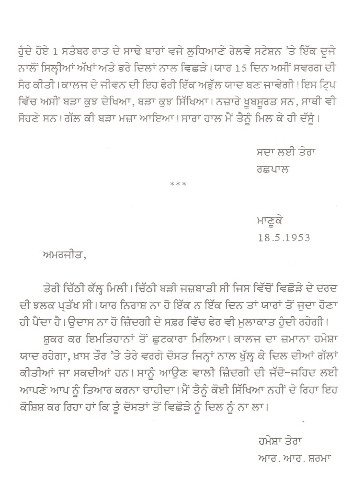 ਹੁੰਦੇ ਹੋਏ 1 ਸਤੰਬਰ ਰਾਤ ਦੇ ਸਾਢੇ ਬਾਰਾਂ ਵਜੇ ਲੁਧਿਆਣੇ ਰੇਲਵੇ ਸਟੇਸ਼ਨ 'ਤੇ ਇੱਕ ਦੂਜੇ
ਨਾਲੋਂ ਸਿਲ੍ਹੀਆਂ ਅੱਖਾਂ ਅਤੇ ਭਰੇ ਦਿਲਾਂ ਨਾਲ ਵਿਛੜੇ। ਯਾਰ 15 ਦਿਨ ਅਸੀਂ ਸਵਰਗ ਦੀ
ਸੈਰ ਕੀਤੀ। ਕਾਲਜ ਦੇ ਜੀਵਨ ਦੀ ਇਹ ਫੇਰੀ ਇੱਕ ਅਭੁੱਲ ਯਾਦ ਬਣ ਜਾਵੇਗੀ। ਇਸ ਟ੍ਰਿਪ
ਵਿੱਚ ਅਸੀਂ ਬੜਾ ਕੁਝ ਦੇਖਿਆ, ਬੜਾ ਕੁਝ ਸਿੱਖਿਆ। ਨਜ਼ਾਰੇ ਖੂਬਸੂਰਤ ਸਨ, ਸਾਥੀ ਵੀ
ਸੋਹਣੇ ਸਨ। ਗੱਲ ਕੀ ਬੜਾ ਮਜ਼ਾ ਆਇਆ। ਸਾਰਾ ਹਾਲ ਮੈਂ ਤੈਨੂੰ ਮਿਲ ਕੇ ਹੀ ਦੱਸੂੰ।
ਸਦਾ ਲਈ ਤੇਰਾ
ਰਛਪਾਲ
***
ਮਾਣੂਕੇ
18.5.1953
ਅਮਰਜੀਤ,
ਤੇਰੀ ਚਿੱਠੀ ਕੱਲ੍ਹ ਮਿਲੀ। ਚਿੱਠੀ ਬੜੀ ਜਜ਼ਬਾਤੀ ਸੀ ਜਿਸ ਵਿੱਚੋਂ ਵਿਛੋੜੇ ਦੇ ਦਰਦ
ਦੀ ਝਲਕ ਪ੍ਰਤੱਖ ਸੀ। ਯਾਰ ਨਿਰਾਸ਼ ਨਾ ਹੋ ਇੱਕ ਨ ਇੱਕ ਦਿਨ ਤਾਂ ਯਾਰਾਂ ਤੋਂ ਜੁਦਾ ਹੋਣਾ
ਹੀ ਪੈਂਦਾ ਹੈ। ਉਦਾਸ ਨਾ ਹੋ ਜ਼ਿੰਦਗੀ ਦੇ ਸਫ਼ਰ ਵਿੱਚ ਫੇਰ ਵੀ ਮੁਲਾਕਾਤ ਹੁੰਦੀ ਰਹੇਗੀ।
ਸ਼ੁਕਰ ਕਰ ਇਮਤਿਹਾਨਾਂ ਤੋਂ ਛੁਟਕਾਰਾ ਮਿਲਿਆ। ਕਾਲਜ ਦਾ ਜ਼ਮਾਨਾ ਹਮੇਸ਼ਾ
ਯਾਦ ਰਹੇਗਾ, ਖ਼ਾਸ ਤੌਰ 'ਤੇ ਤੇਰੇ ਵਰਗੇ ਦੋਸਤ ਜਿਨ੍ਹਾਂ ਨਾਲ ਖੁੱਲ੍ਹ ਕੇ ਦਿਲ ਦੀਆਂ ਗੱਲਾਂ
ਕੀਤੀਆਂ ਜਾ ਸਕਦੀਆਂ ਹਨ। ਸਾਨੂੰ ਆਉਣ ਵਾਲੀ ਜ਼ਿੰਦਗੀ ਦੀ ਜੱਦੋ-ਜਹਿਦ ਲਈ
ਆਪਣੇ ਆਪ ਨੂੰ ਤਿਆਰ ਕਰਨਾ ਚਾਹੀਦਾ। ਮੈਂ ਤੈਨੂੰ ਕੋਈ ਸਿੱਖਿਆ ਨਹੀਂ ਦੇ ਰਿਹਾ ਇਹ
ਕੋਸ਼ਿਸ਼ ਕਰ ਰਿਹਾ ਹਾਂ ਕਿ ਤੂੰ ਦੋਸਤਾਂ ਤੋਂ ਵਿਛੋੜੇ ਨੂੰ ਦਿਲ ਨੂੰ ਨਾ ਲਾ।
ਹਮੇਸ਼ਾ ਤੇਰਾ
ਆਰ. ਆਰ. ਸ਼ਰਮਾ